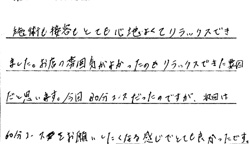 施術も接客もとても心地よくてリラックスでき
ました。お店の雰囲気がよかったのもリラックスできた要因
だと思います。今回 80分コースだったのですが、次回は
60分コースをお願いしたくなる感じでとても良かったです。